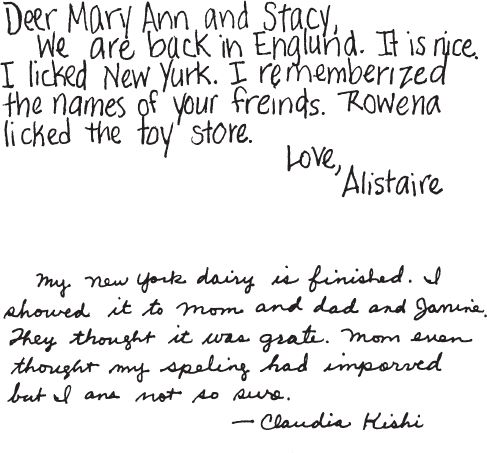 Deer Mary Ann and Stacy,
We are back in Englund. It is nice.
I licked New Yurk. I rememberized
the names of your freinds. Rowena
licked the toy store.
Love,
Alistaire
My new york dairy is finished. I
showed it to mom and dad and Janine.
They thought it was grate. Mom even
thought my speling had imporved
but I ans not so sure.
— Claudia Kishi